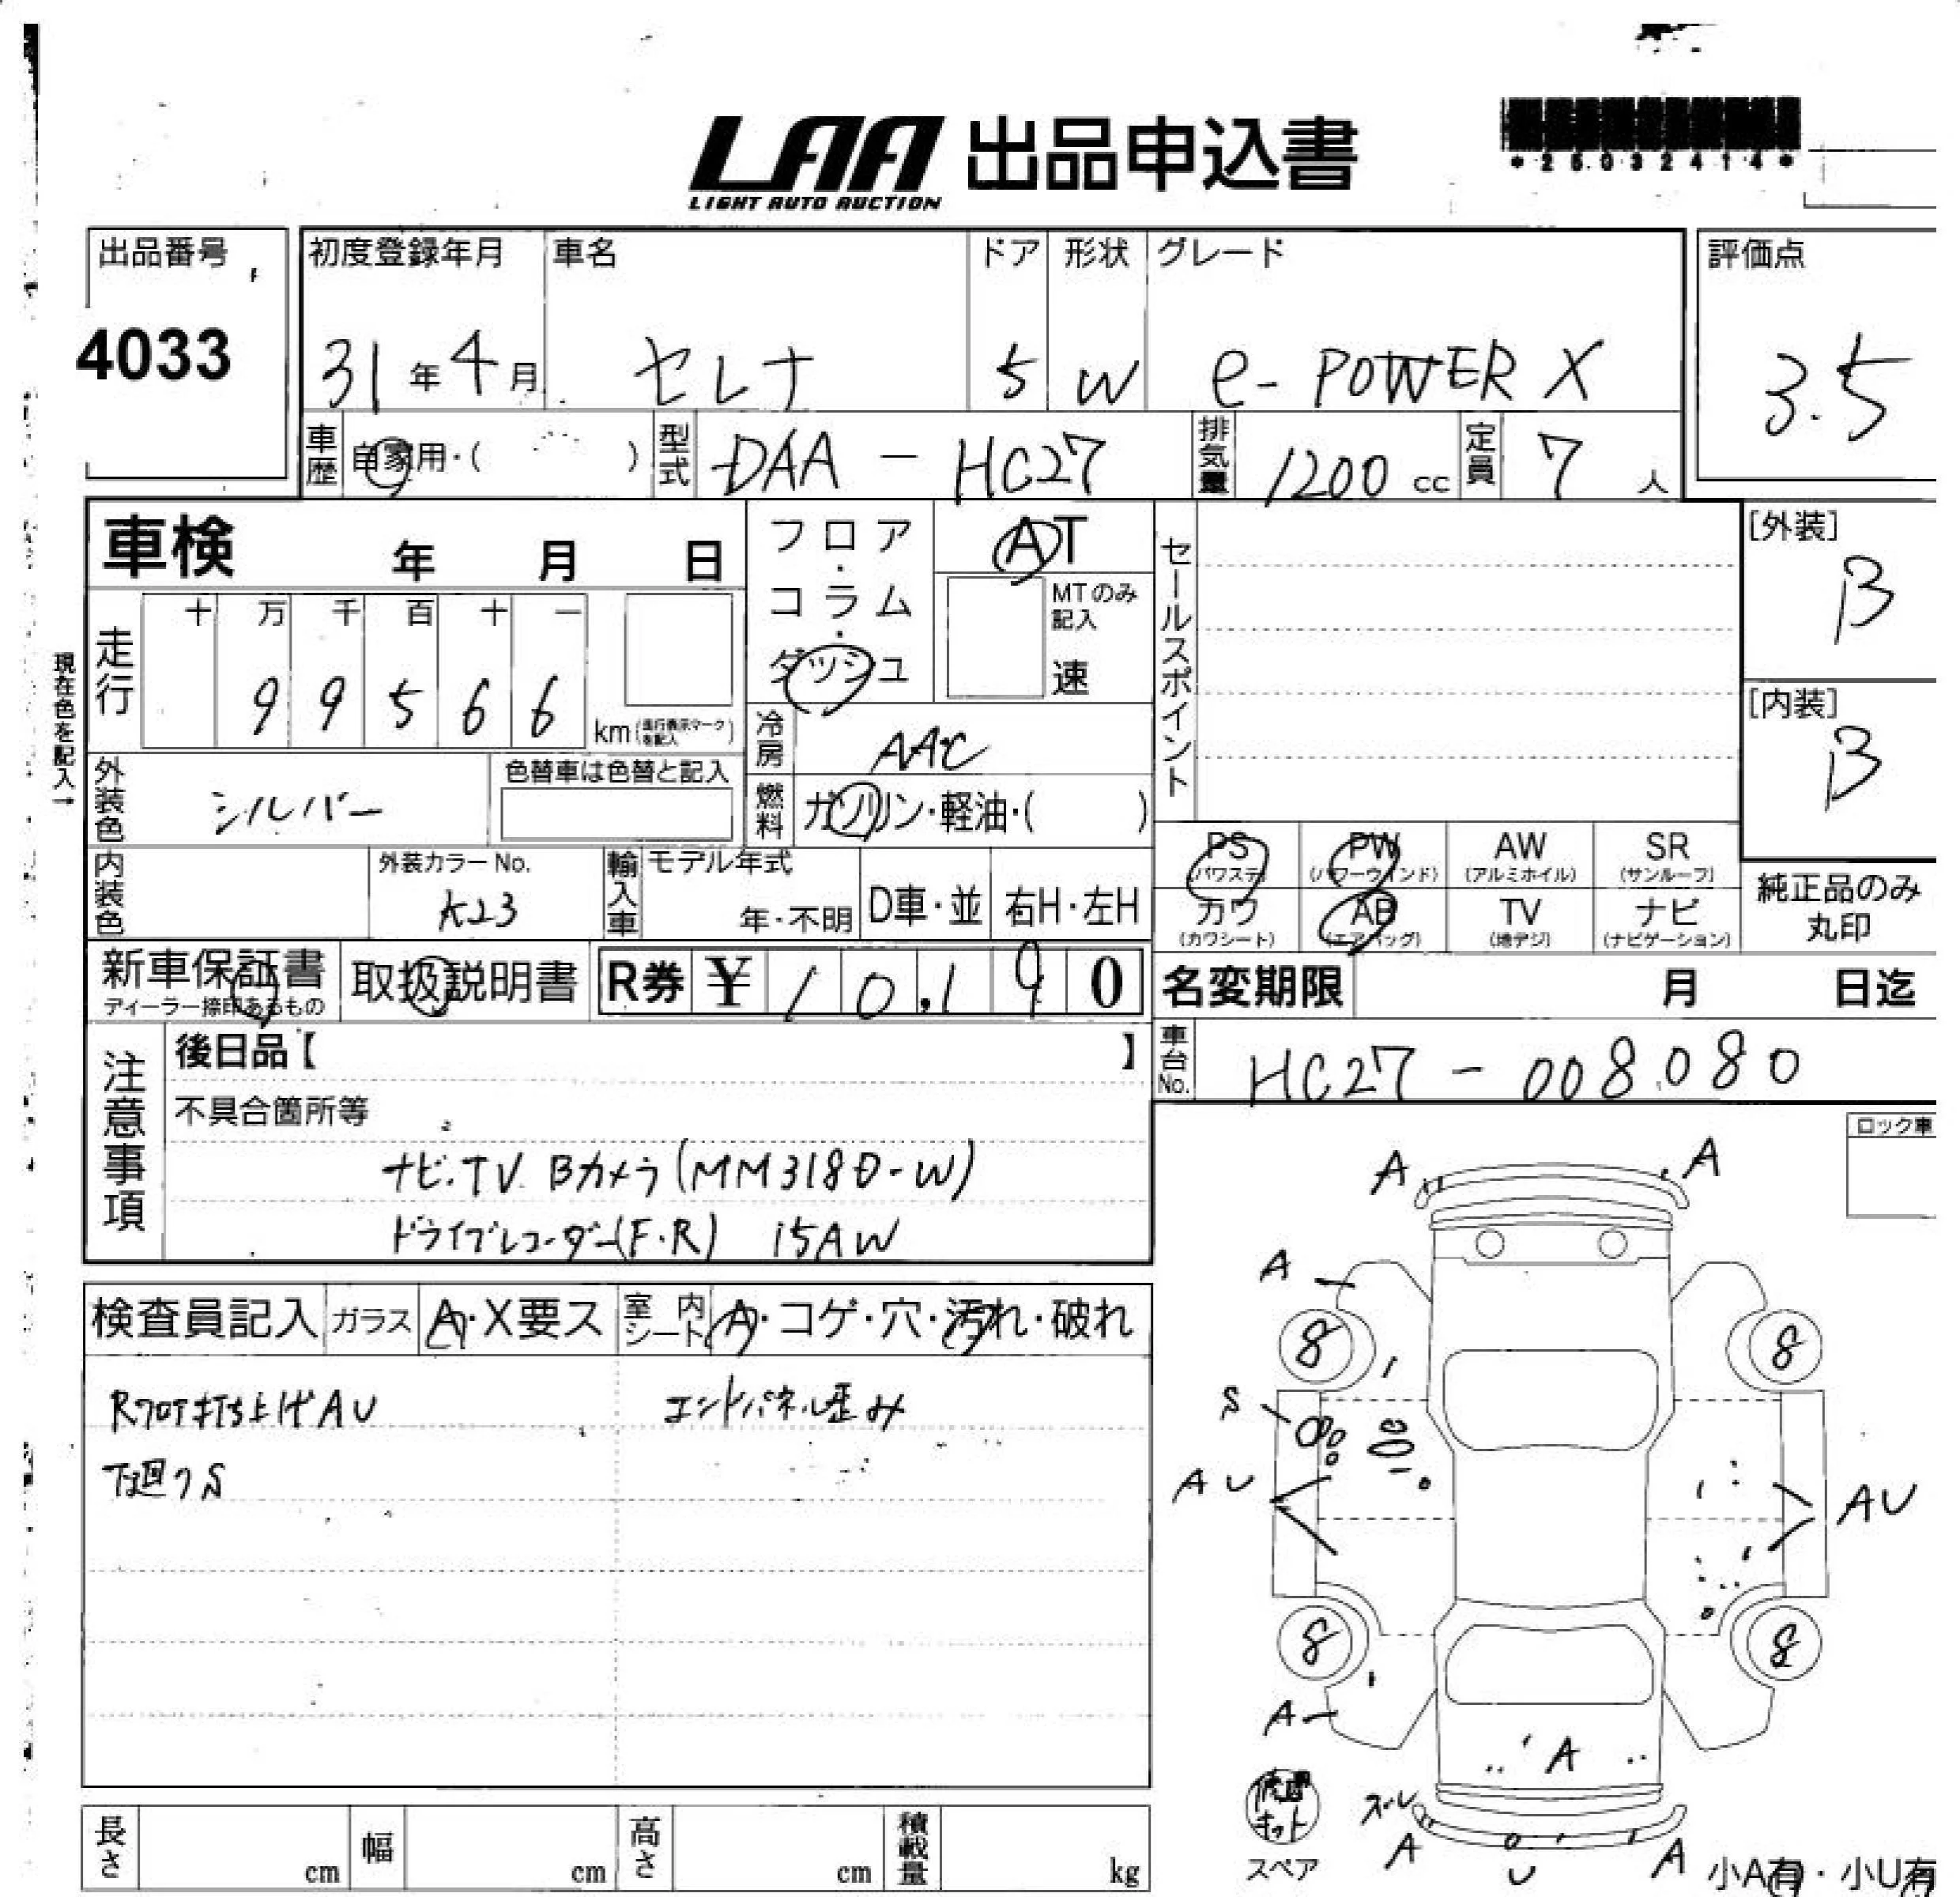 LAA 出品申込書
LIGHT AUTO AUCTION
*25032414*
出品番号
4033
初度登録年月 車名 ドア 形状 グレード 評価点
31年4月 セレナ 5 W e-POWER X 3.5
車歴 自家用・( ) 型式 DAA - HC27 排気量 1200 cc 定員 7 人
車検 年 月 日
フロア・コラム・ダッシュ
AT
MTのみ記入
速
セールスポイント
[外装]
B
[内装]
B
現在色を記入→
走行 十 万 千 百 十 一
9 9 5 6 6 km(走行表示マークを記入)
冷房 AAC
燃料 ガソリン・軽油・( )
外装色 シルバー 色替車は色替と記入
内装色 外装カラーNo. K23 輸入車 モデル年式 年・不明 D車・並 右H・左H
PS (パワステ) PW (パワーウインド) AW (アルミホイル) SR (サンルーフ)
カワ (カワシート) AB (エアバッグ) TV (地デジ) ナビ (ナビゲーション)
純正品のみ丸印
新車保証書 ディーラー捺印あるもの 取扱説明書 R券 ¥ 10,190
名変期限 月 日迄
車台No. HC27 - 008080
注意事項
後日品【 】
不具合箇所等
ナビ.TV Bカメラ(MM318D-W)
ドライブレコーダー(F・R) 15AW
ロック車
検査員記入 ガラス A・X要ス 室内シート A・コゲ・穴・汚れ・破れ
Rフロア打ち上げAU エンドパネル歪み
下廻りS
A A
A
8 8
S
AU AU
8 8
A
A
修理キット
スペア
ズレ
A U A
小A有・小U有
長さ cm 幅 cm 高さ cm 積載量 kg